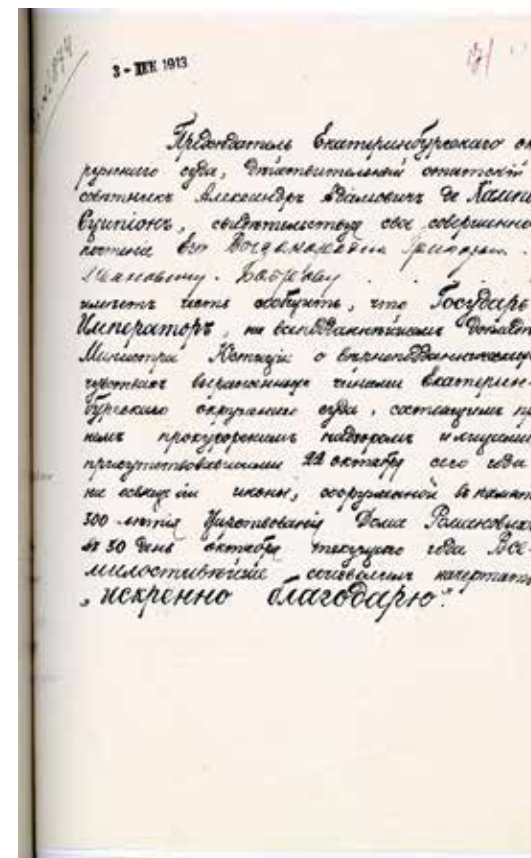 3 - ДЕК 1913
Председатель Екатеринбургскаго ок
ружнаго суда, Действительный статский
советникъ Александръ Адамовичъ де
Сципіонъ, свидетельствуя свое совершенное
почтеніе Его
Ивановичу
имеетъ честь сообщить, что Государь
Императоръ, на всеподданнейшемъ докладе
Министра Юстиціи о верноподданническихъ
чувствахъ выраженныхъ чинами Екатерин-
бургскаго окружнаго суда, состоящимъ пр
немъ прокурорскимъ надзоромъ и лицами
присутствовавшими 22 октября сего года
на освященіи иконы, сооруженной въ память
300-летія Царствованія Дома Романовыхъ
въ 30 день октября текущаго года Все-
милостивейше соизволилъ начертать
"искренно благодарю".